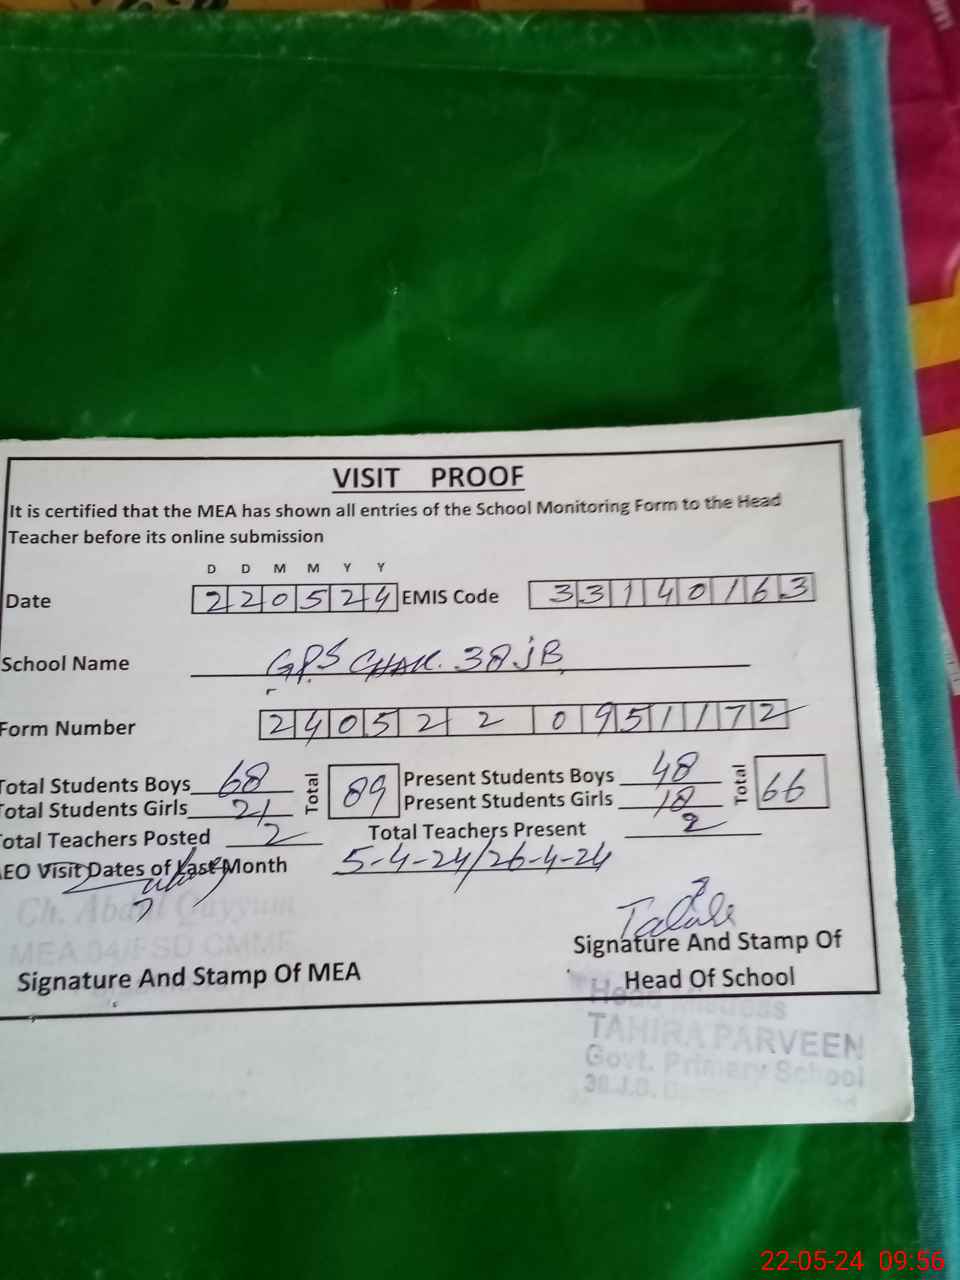 VISIT PROOF
It is certified that the MEA has shown all entries of the School Monitoring Form to the Head
Teacher before its online submission
D D M M Y Y
Date 220524 EMIS Code 33140163
School Name GPS CHAK. 38 JB
Form Number 2405220951172
Total Students Boys 68 Total 89 Present Students Boys 48 Total 66
Total Students Girls 21 Present Students Girls 18
Total Teachers Posted 2 Total Teachers Present 2
AEO Visit Dates of Last Month 5-4-24/26-4-24
Ch. Abdul Qayyum
MEA 04/FSD CMMF
Signature And Stamp Of MEA
Signature And Stamp Of
Head Of School
Head Mistress
TAHIRA PARVEEN
Govt. Primary School
38 J.B.
22-05-24 09:56